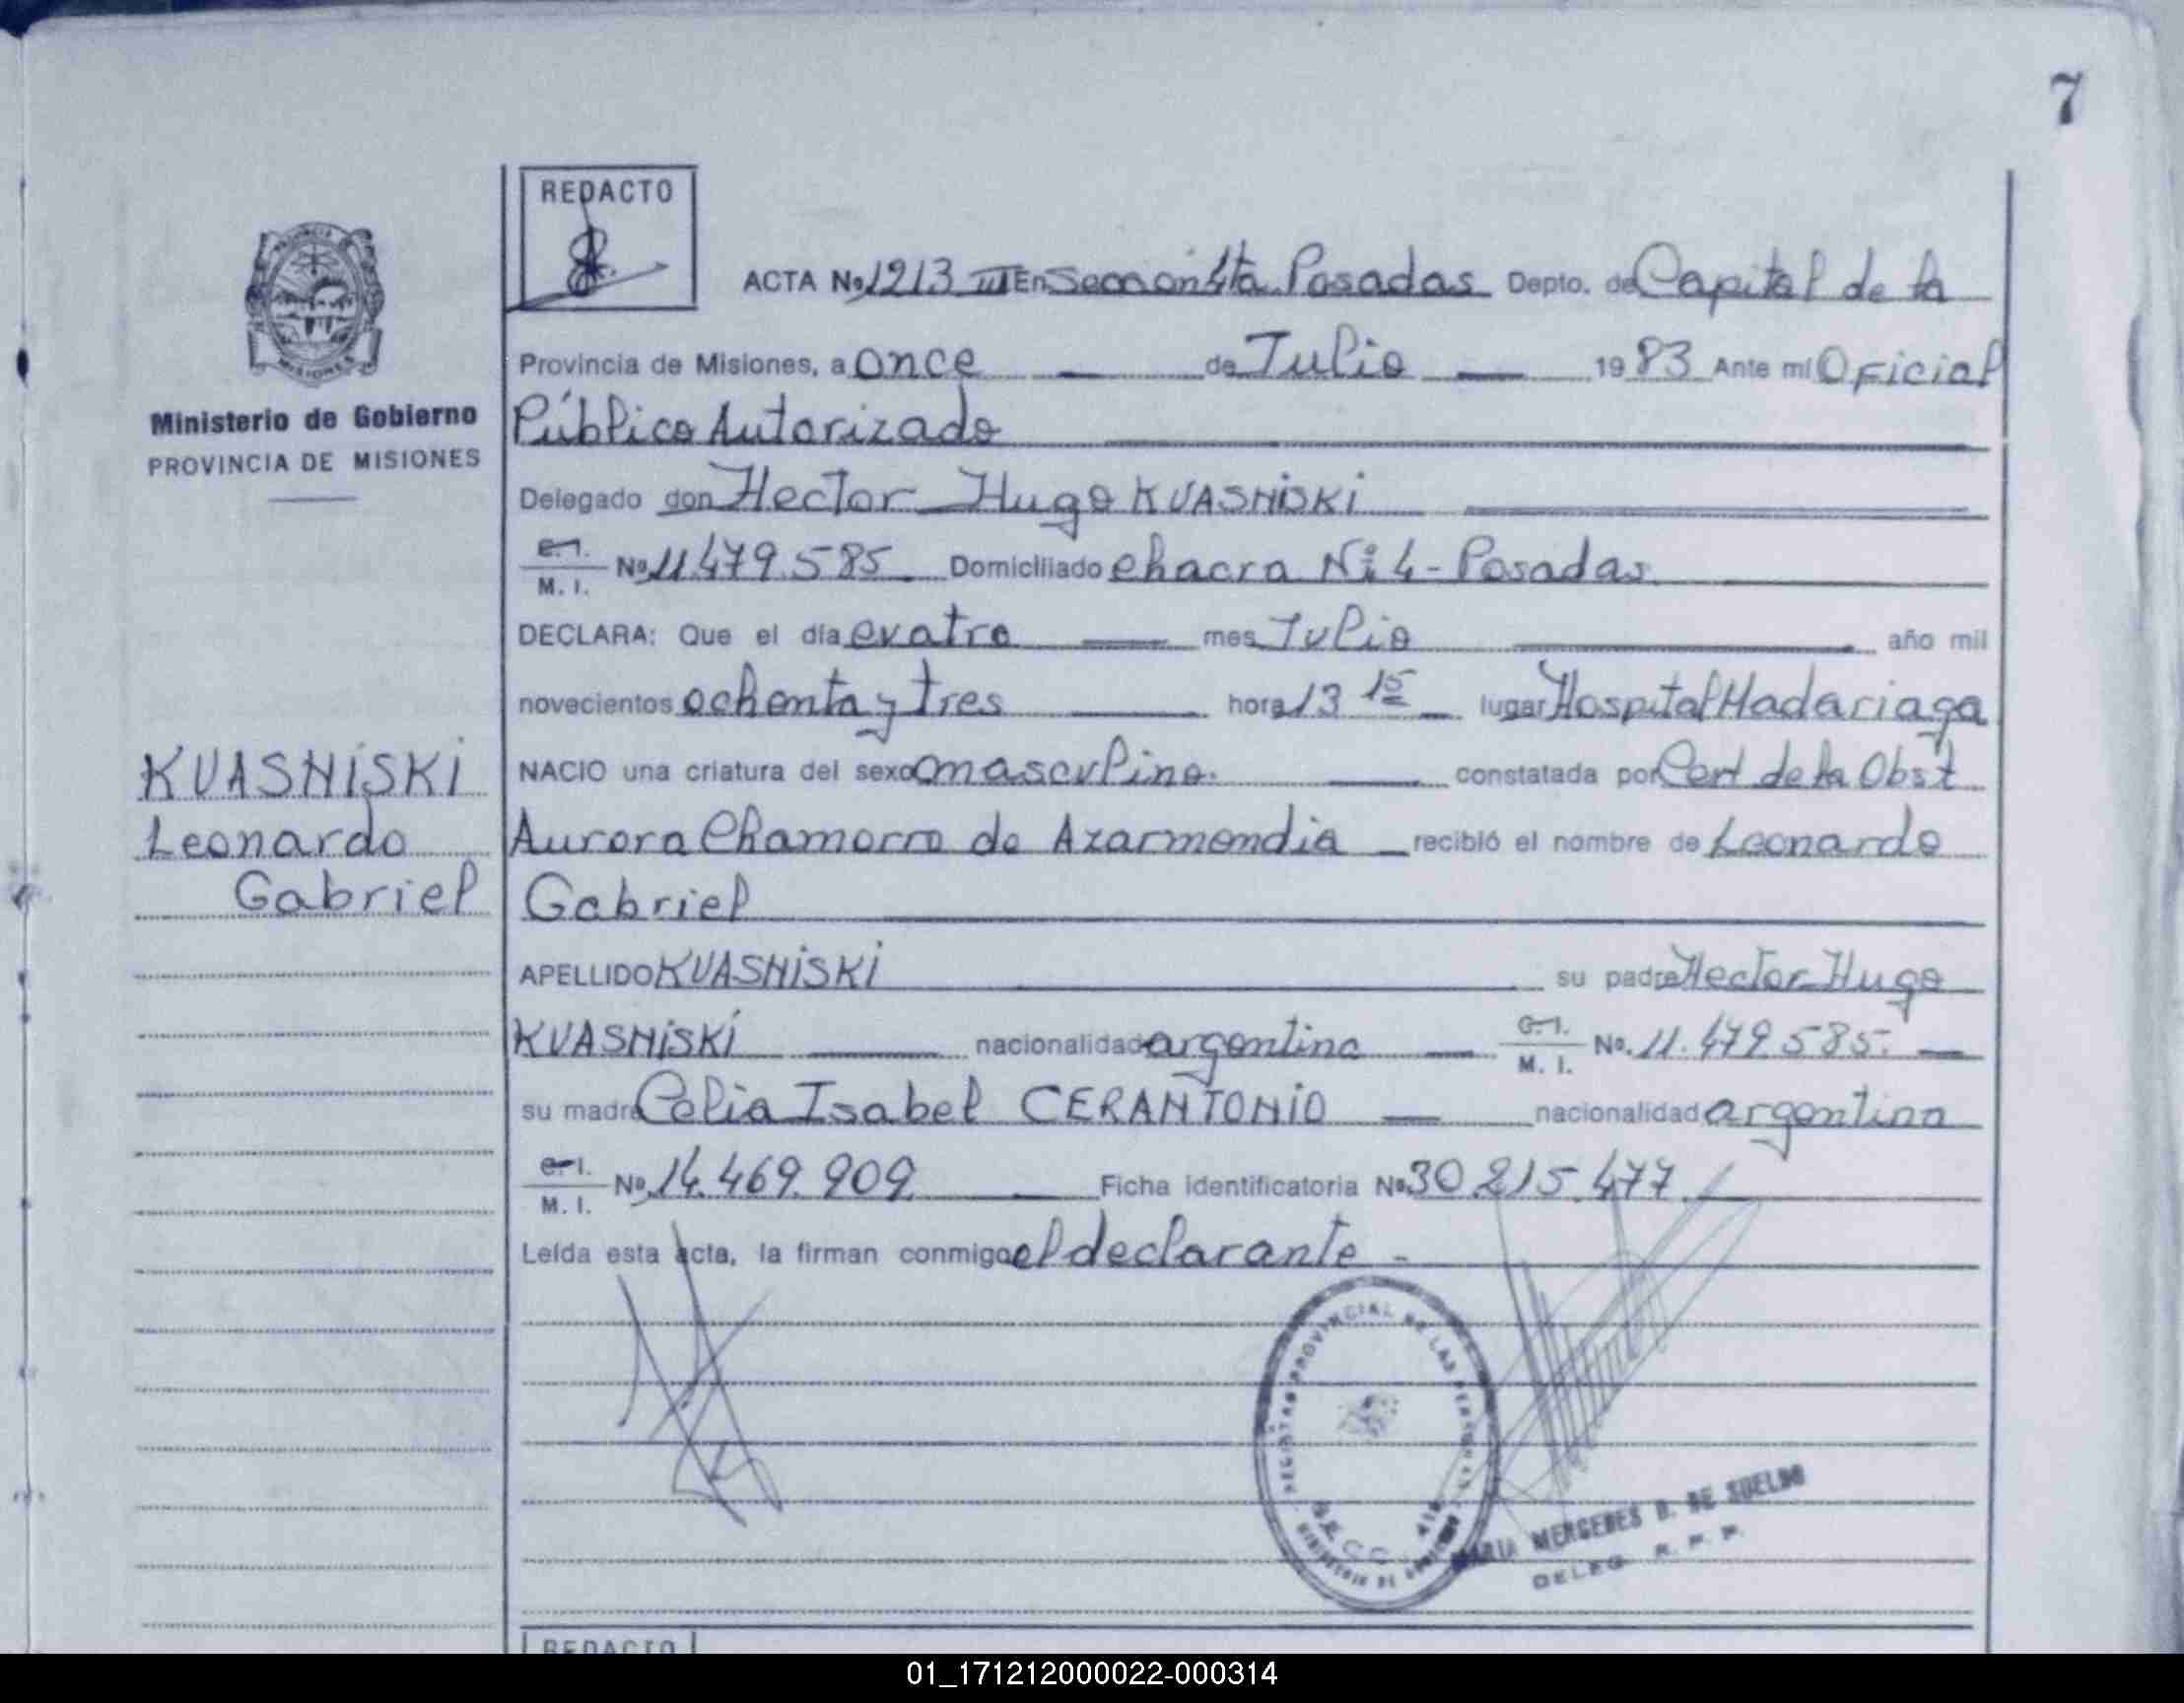 7
REDACTO
ACTA No. 1213 III En Sección 4ta. Posadas Depto. de Capital de la
Provincia de Misiones, a once de Julio 1983 Ante mí Oficial
Público Autorizado
Delegado don Hector Hugo KUASNiSKi
C. I. M. I. No. 11.479.585. Domiciliado chacra Nº 4 - Posadas
DECLARA: Que el día cuatro mes Julio año mil
novecientos ochenta y tres hora 13 15 lugar Hospital Madariaga
NACIO una criatura del sexo masculino. constatada por Cert de la Obst
Aurora Chamorro de Azarmendia recibió el nombre de Leonardo
Gabriel
APELLIDO KUASNiSKi su padre Hector Hugo
KUASNiSKi nacionalidad argentina C. I. M. I. No. 11.479.585.
su madre Celia Isabel CERANTONiO nacionalidad argentina
C. I. M. I. No. 14.469.909 Ficha identificatoria No. 30.215.477.
Leída esta acta, la firman conmigo el declarante -
PROVINCIA DE
MISIONES
Ministerio de Gobierno
PROVINCIA DE MISIONES
KUASNiSKi
Leonardo
Gabriel
REGISTRO PROVINCIAL DE LAS PERSONAS
SECC 4ta
MINISTERIO DE GOBIERNO
MARIA MERCEDES D. DE SUELDO
DELEG. R. P. P.
REDACTO
01_171212000022-000314